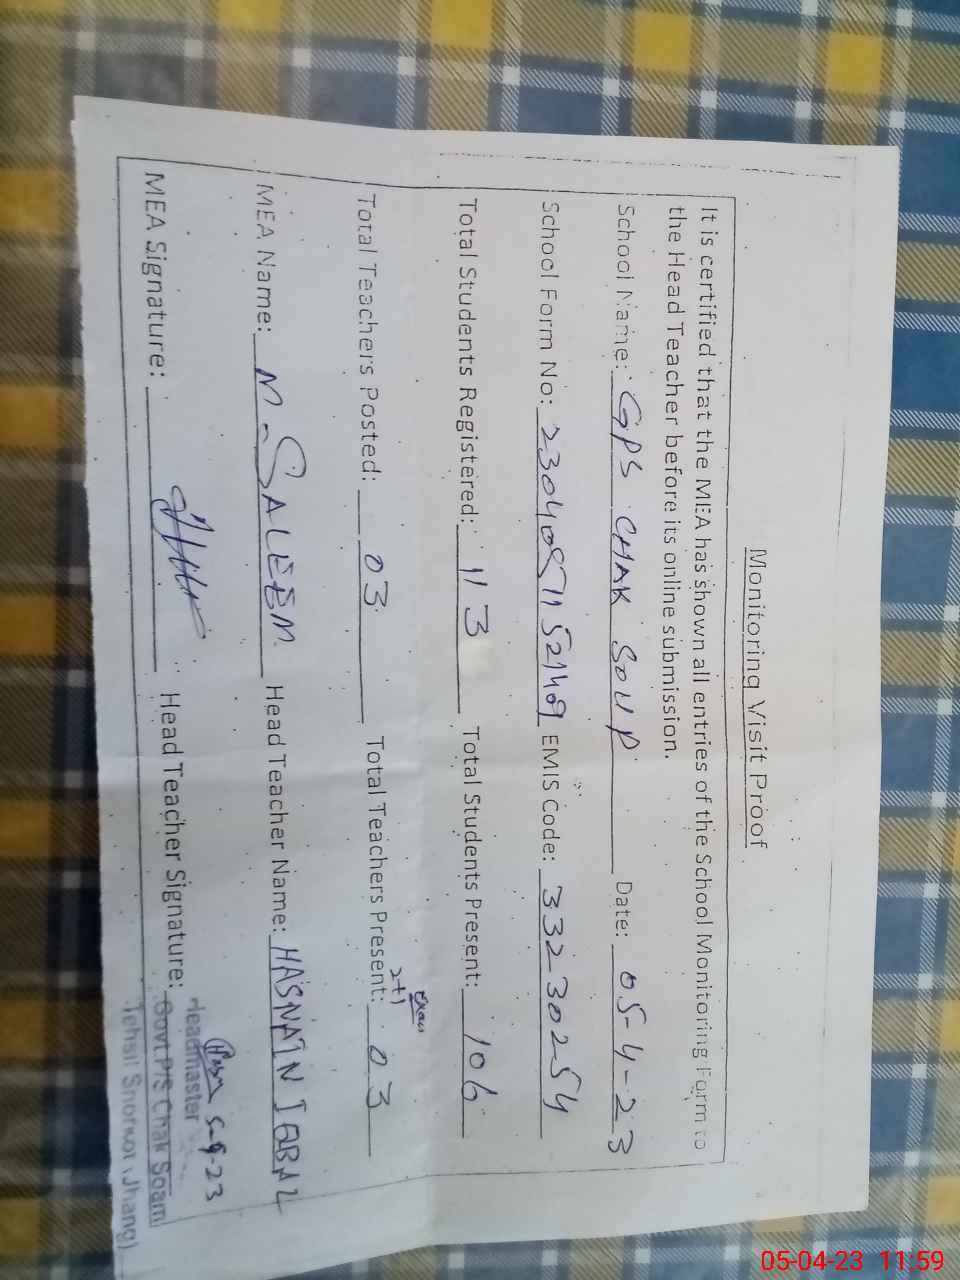 Monitoring Visit Proof
It is certified that the MEA has shown all entries of the School Monitoring Form to
the Head Teacher before its online submission.
School Name: GPS CHAK SOUP Date: 05-4-23
School Form No: EMIS Code: 33230254
Total Students Registered: 113 Total Students Present: 106
Total Teachers Posted: 03 Total Teachers Present: 03
2+1
MEA Name: M. SALEEM Head Teacher Name: HASNAIN IQBAL
MEA Signature: Head Teacher Signature:
Headmaster
Govt.P/S Chak Soam
Tehsil Shorkot (Jhang)
05-04-23 11:59